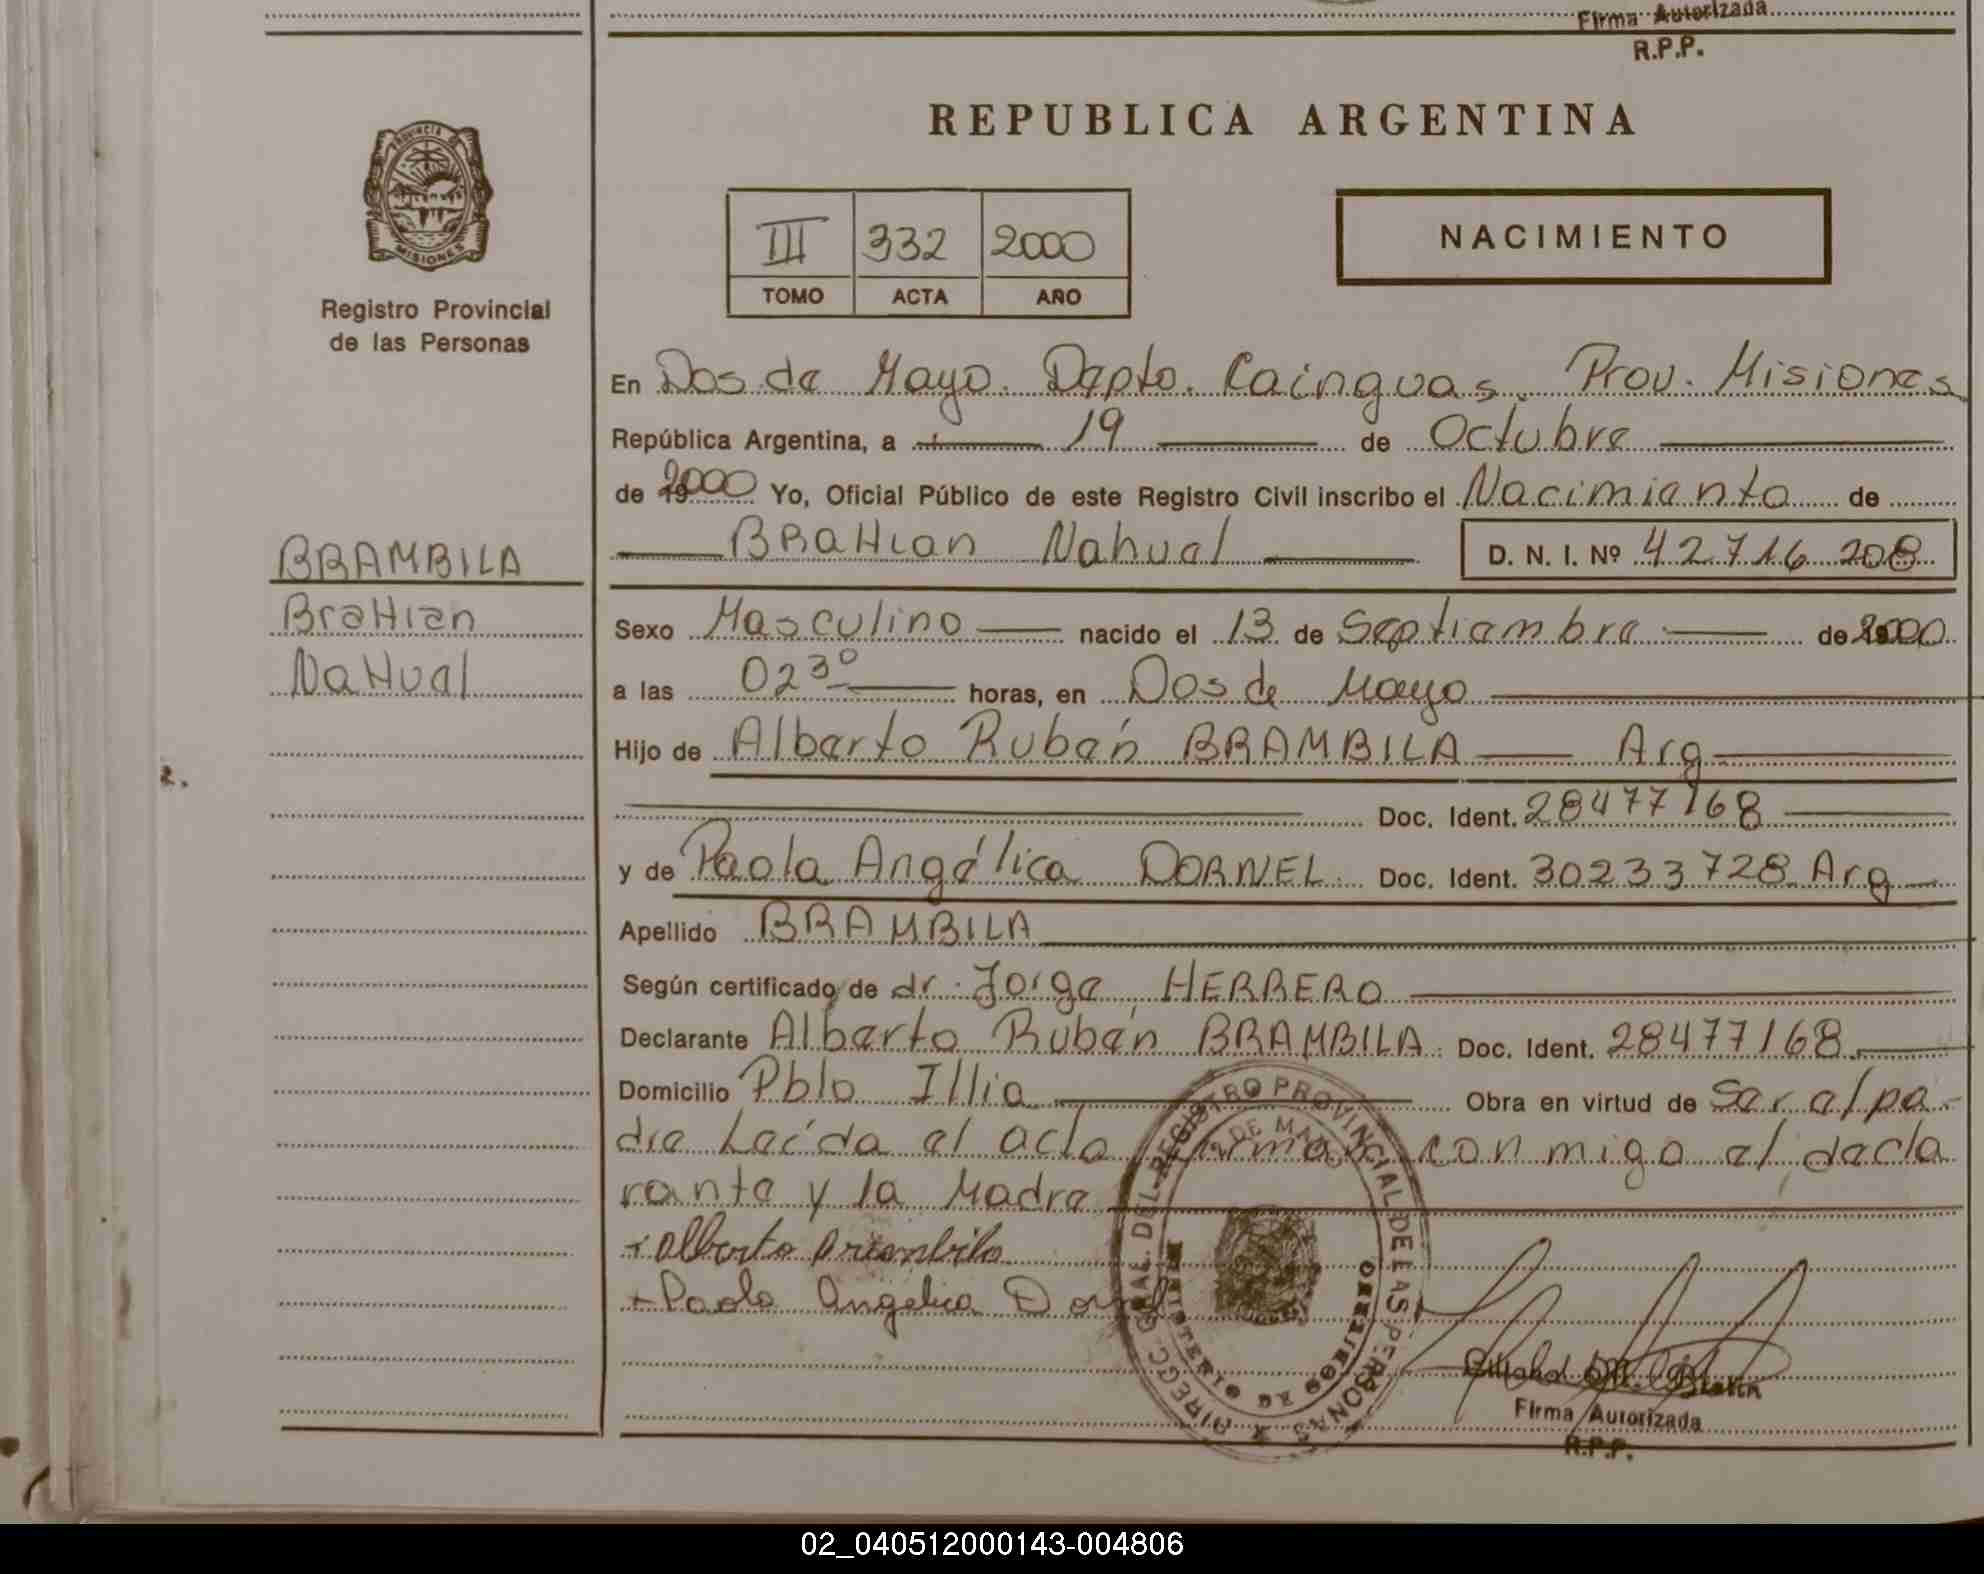 Firma Autorizada
R.P.P.
PROVINCIA DE
MISIONES
Registro Provincial
de las Personas
REPUBLICA ARGENTINA
III 332 2000
TOMO ACTA AÑO
NACIMIENTO
En Dos de Mayo. Depto. Cainguas. Prov. Misiones
República Argentina, a 19 de Octubre
de 2000 Yo, Oficial Público de este Registro Civil inscribo el Nacimiento de
BRAMBILA
BraHian Nahuel D. N. I. Nº 42.716.208
BraHian
Sexo Masculino nacido el 13 de Septiembre de 2000
NaHuel
a las 02³⁰ horas, en Dos de Mayo
Hijo de Alberto Rubén BRAMBILA Arg
Doc. Ident. 28477168
y de Paola Angélica DORNEL Doc. Ident. 30233728 Arg
Apellido BRAMBILA
Según certificado de dr. Jorge HERRERO
Declarante Alberto Rubén BRAMBILA Doc. Ident. 28477168
Domicilio Pblo Illia Obra en virtud de Ser el pa-
dre Leída el acta firman conmigo el decla
rante y la Madre
+ Alberto Brambila
+ Paola Angelica Dornel
DIRECC. GRAL. DEL REGISTRO PROVINCIAL DE LAS PERSONAS
2 DE MAYO
MINISTERIO DE GOBIERNO
Firma Autorizada
R.P.P.
02_040512000143-004806